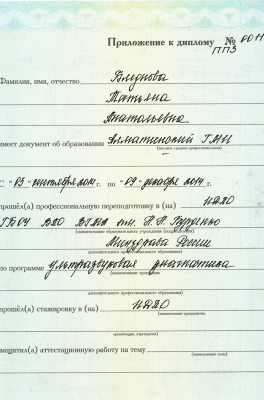 Приложение к диплому № 0011
ППЗ
Фамилия, имя, отчество Блуднова
Татьяна
Анатольевна
имеет документ об образовании Алматинский ГМИ
(высшем, среднем профессиональном)
С "03" сентября 2014 г. по "09" декабря 2014 г.
прошёл(а) профессиональную переподготовку в (на)
ГБОУ ВПО им. Н.Н. Бурденко
(наименование образовательного учреждения
Минздрава России
дополнительного профессионального образования)
по программе ультразвуковая диагностика
(наименование программы
дополнительного профессионального образования)
прошёл(а) стажировку в (на)
(наименование предприятия,
организации, учреждения)
защитил(а) аттестационную работу на тему
(наименование темы)